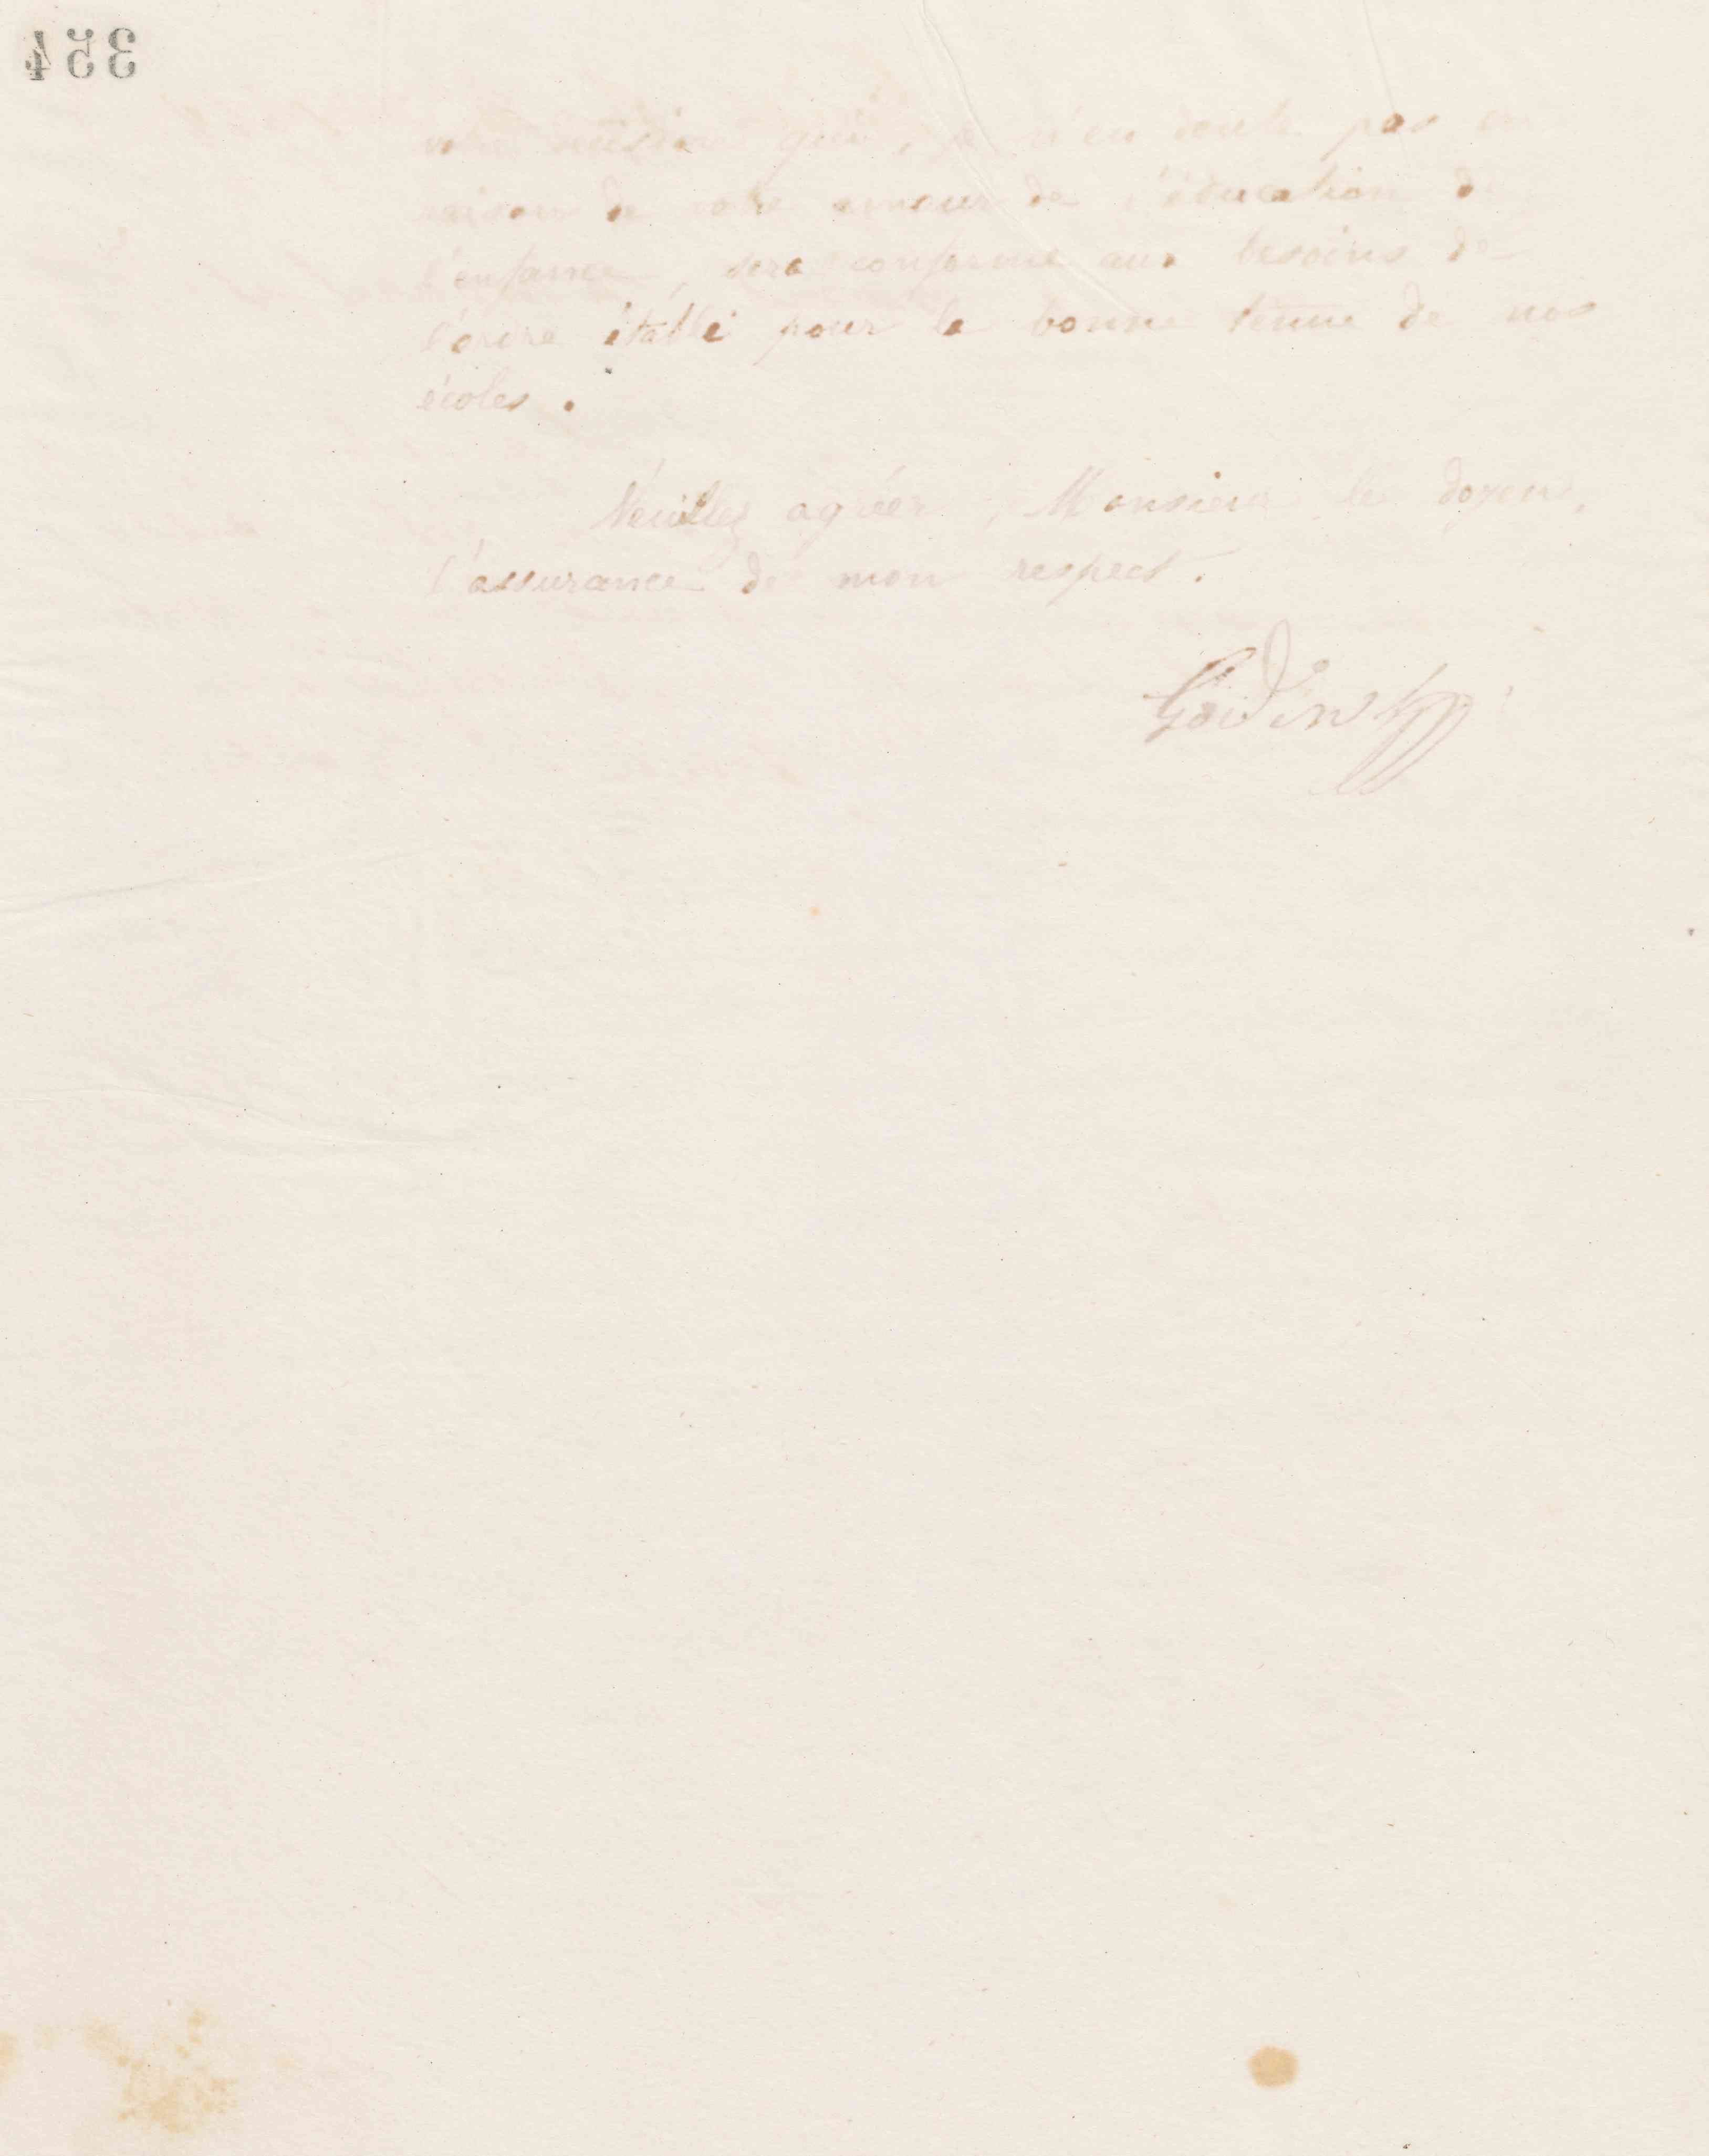 354
votre décision qui, je n'en doute pas en
raison de votre amour de l'éducation de
l'enfance, sera conforme aux besoins de
l'ordre établi pour la bonne tenue de nos
écoles.
Veuillez agréer, Monsieur le doyen,
l'assurance de mon respect.
Godin